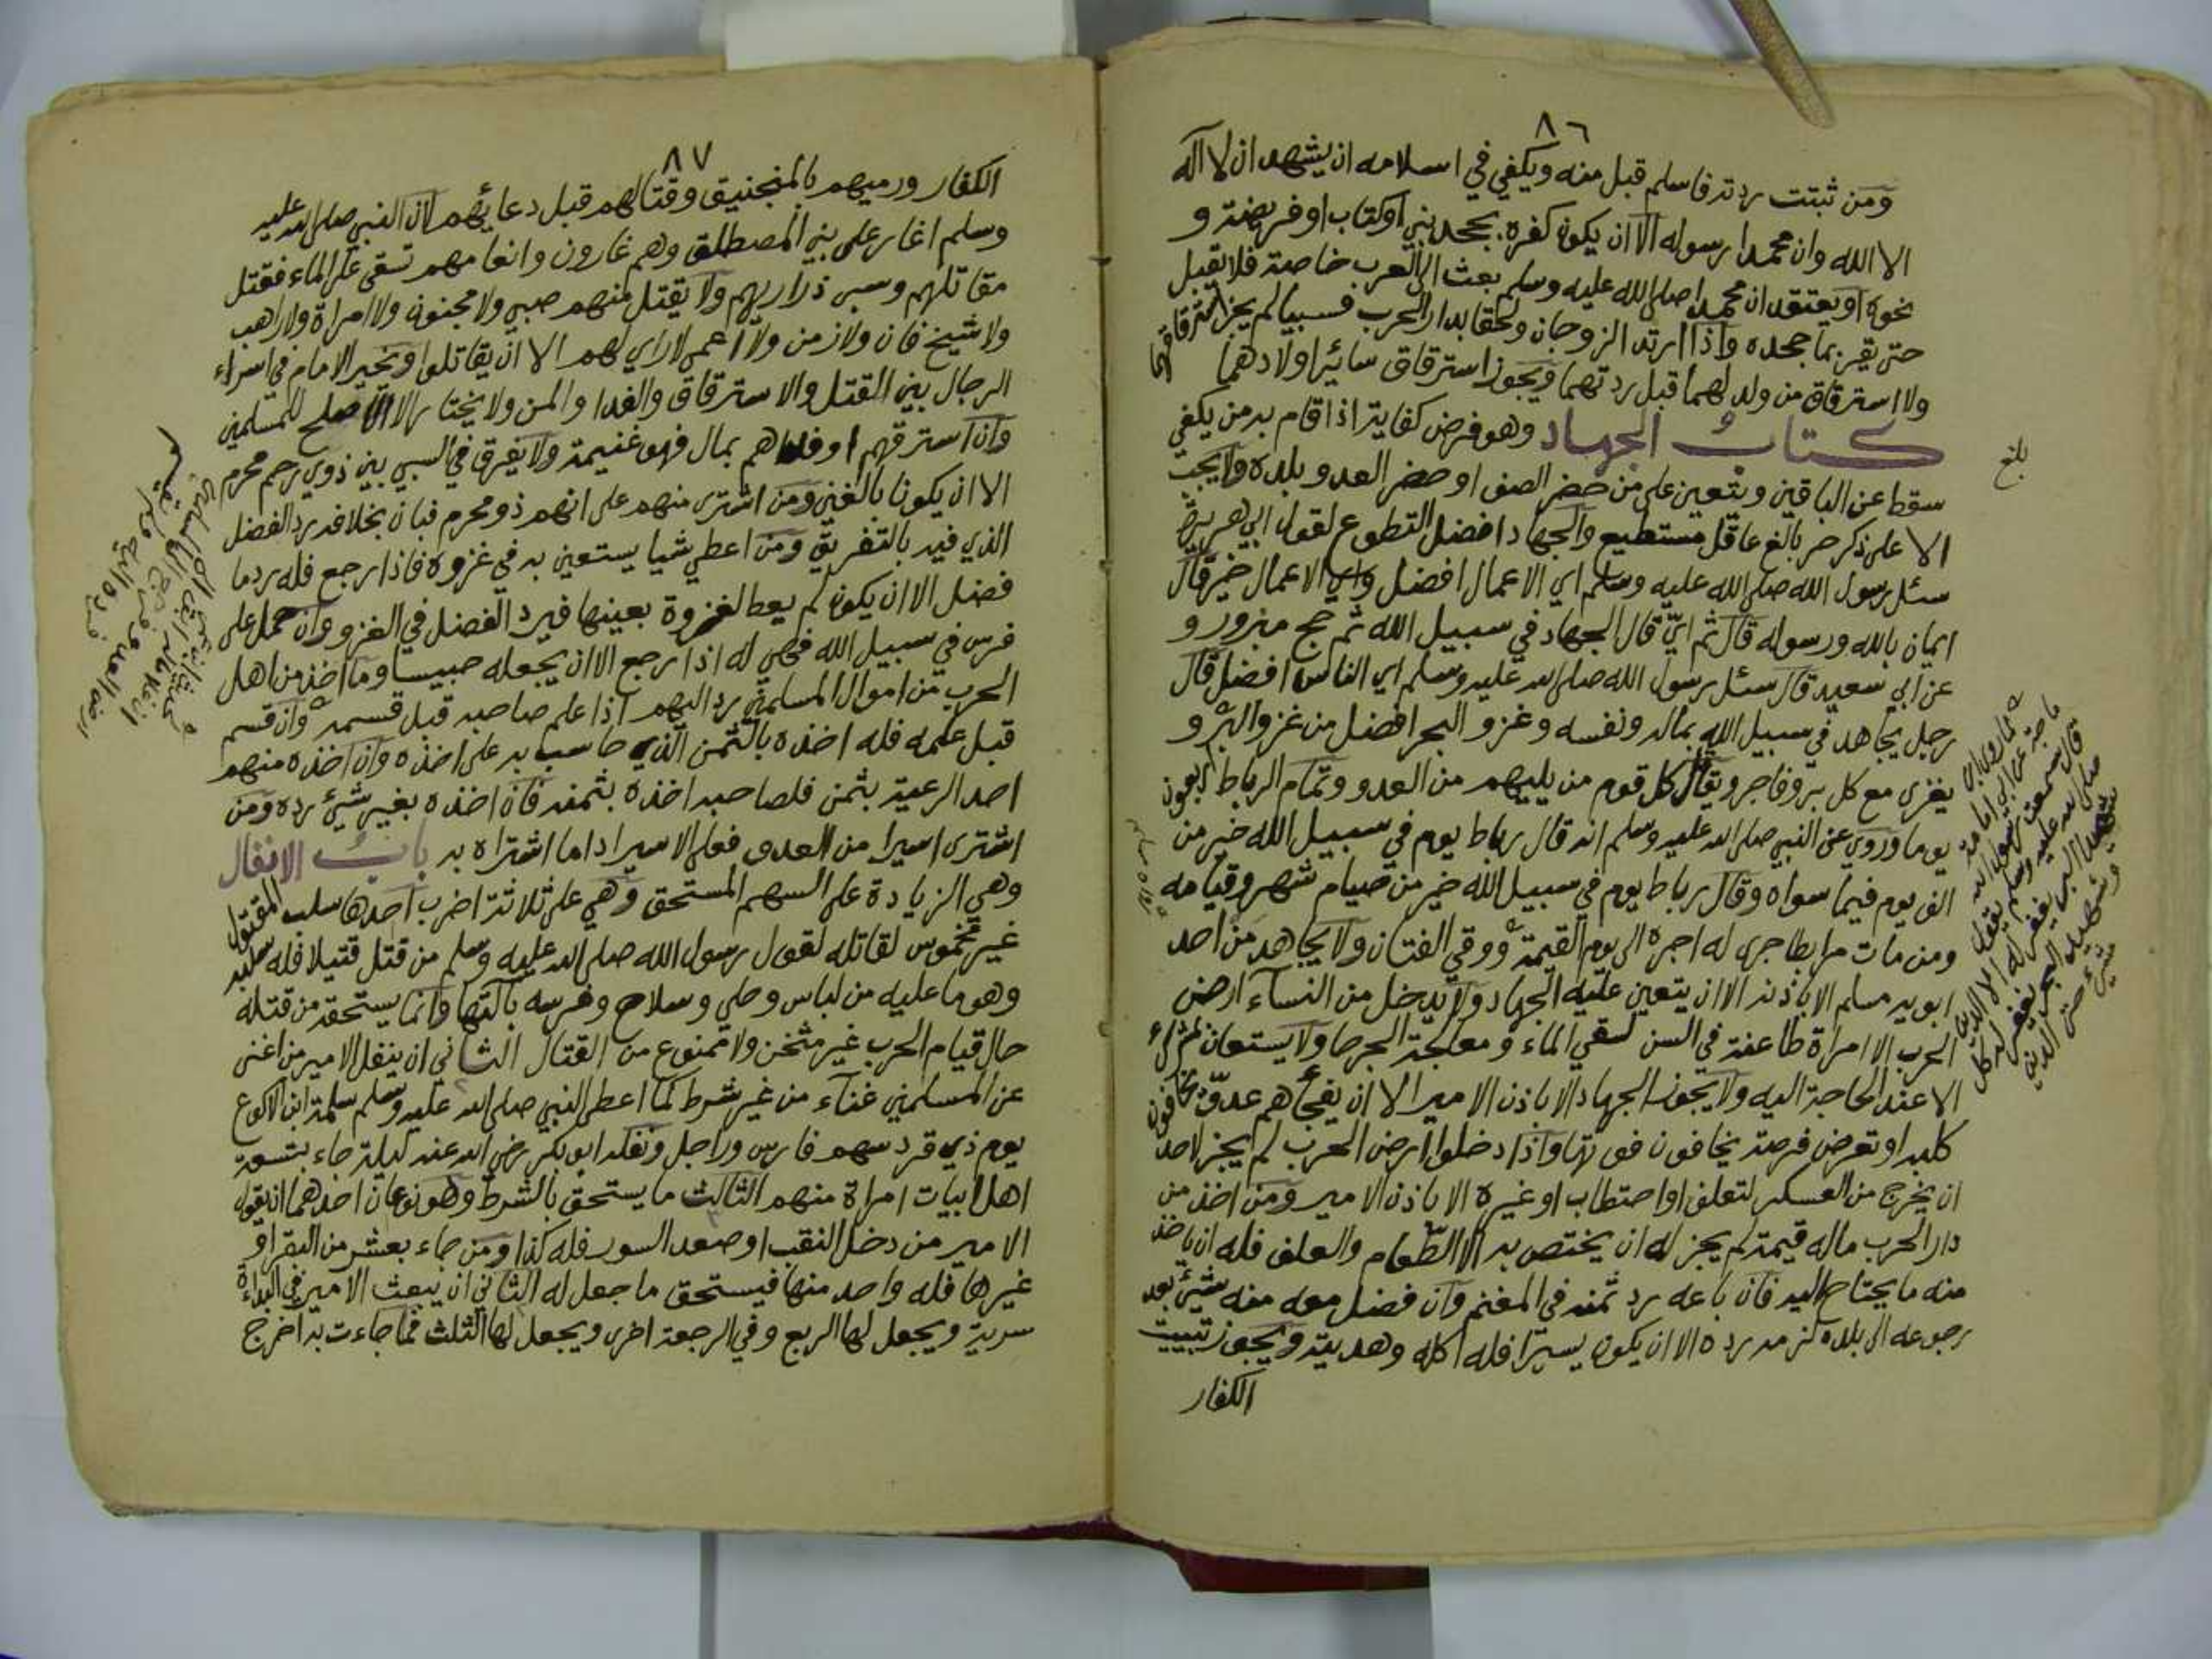 ٨٦
ومن ثبتت ردته فاسلم قبل منه ويكفي في اسلامه ان يشهد ان لا اله
الا الله وان محمدا رسوله الا ان يكون كفره بجحد نبي او كتاب او فريضة و
نحوه او يعتقد ان محمدا صلى الله عليه وسلم بعث الى العرب خاصة فلا تقبل
حتى يقر بما جحده واذا ارتد الزوجان ولحقا بدار الحرب فسبيا لم يجز استرقاقهما
ولا استرقاق من ولد لهما قبل ردتهما ويجوز استرقاق سائر اولادهما
كتاب الجهاد وهو فرض كفاية اذا قام به من يكفي
سقط عن الباقين ويتعين على من حضر الصف او حضر العدو بلده ولا يجب
الا على ذكر حر بالغ عاقل مستطيع والجهاد افضل التطوع لقول ابي هريرة
سئل رسول الله صلى الله عليه وسلم اي الاعمال افضل واي الاعمال خير قال
ايمان بالله ورسوله قال ثم اي قال الجهاد في سبيل الله ثم حج مبرور و
عن ابي سعيد قال سئل رسول الله صلى الله عليه وسلم اي الناس افضل قال
رجل يجاهد في سبيل الله بماله ونفسه وغزو البحر افضل من غزو البر و
يغزى مع كل بر وفاجر ويقاتل كل قوم من يليهم من العدو وتمام الرباط اربعون
يوما وروي عن النبي صلى الله عليه وسلم انه قال رباط يوم في سبيل الله خير من
الف يوم فيما سواه وقال رباط يوم في سبيل الله خير من صيام شهر وقيامه
ومن مات مرابطا جرى له اجره الى يوم القيمة ووقي الفتان ولا يجاهد من احد
ابويه مسلم الا باذنه الا ان يتعين عليه الجهاد ولا يدخل من النساء ارض
الحرب الا امراة طاعنة في السن لسقي الماء ومعالجة الجرحا ولا يستعان بمشرك
الا عند الحاجة اليه ولا يجوز الجهاد الا باذن الامير الا ان يفجأهم عدو يخافون
كلبه او تعرض فرصة يخافون فوتها واذا دخلوا ارض الحرب لم يجز لاحد
ان يخرج من العسكر لتعلف او احتطاب او غيره الا باذن الامير ومن اخذ من
دار الحرب ماله قيمة لم يجز له ان يختص به الا الطعام والعلف فله ان ياخذ
منه ما يحتاج اليه فان باعه رد ثمنه في المغنم وان فضل معه منه شيئ بعد
رجوعه الى بلده لزمه رده الا ان يكون يسيرا فله اكله وهديته ويجوز تبييت
الكفار
بلغ
كما روى ابن
ماجة عن ابي امامة
قال سمعت رسول الله
صلى الله عليه وسلم يقول
شهيد البر يغفر له الا الدين
وشهيد البحر يغفر له كل
شيء حتى الدين
رواه مسلم
٨٧
الكفار ورميهم بالمنجنيق وقتالهم قبل دعائهم لان النبي صلى الله عليه
وسلم اغار على بني المصطلق وهم غارون وانعامهم تسقى على الماء فقتل
مقاتلهم وسبى ذراريهم ولا يقتل منهم صبي ولا مجنون ولا امراة ولا راهب
ولا شيخ فان ولا زمن ولا اعمى لا راي لهم الا ان يقاتلوا ويخير الامام في اسراء
الرجال بين القتل والاسترقاق والفدا والمن ولا يختار الا الاصلح للمسلمين
وان استرقهم او فداهم بمال فهو غنيمة ولا يفرق في السبي بين ذوي رحم محرم
الا ان يكونا بالغين ومن اشترى منهم على انهم ذو محرم فبان بخلافه رد الفضل
الذي فيه بالتفريق ومن اعطي شيا يستعين به في غزوه فاذا رجع فله رد ما
فضل الا ان يكون لم يعط لغزوة بعينها فيرد الفضل في الغزو وان حمل على
فرس في سبيل الله فهي له اذا رجع الا ان يجعله حبيسا وما اخذ من اهل
الحرب من اموال المسلمين رد اليهم اذا علم صاحبه قبل قسمه وان قسم
قبل علمه فله اخذه بالثمن الذي حاسب به على اخذه وان اخذه منهم
احد الرعية بثمن فلصاحبه اخذه بثمنه فان اخذه بغير شيئ رده ومن
اشترى اسيرا من العدو فعلى الاسير اداما اشتراه به باب الانفال
وهي الزيادة على السهم المستحق وهي على ثلاثة اضرب احدها سلب المقتول
غير مخموس لقاتله لقول رسول الله صلى الله عليه وسلم من قتل قتيلا فله سلبه
وهو ما عليه من لباس وحلي وسلاح وفرسه بآلتها وانما يستحقه من قتله
حال قيام الحرب غير مثخن ولا ممنوع من القتال الثاني ان ينفل الامير من اغنى
عن المسلمين غناء من غير شرط كما اعطى النبي صلى الله عليه وسلم سلمة ابن الاكوع
يوم ذي قرد سهم فارس وراجل ونفله ابو بكر رضي الله عنه ليلة جاء بتسعة
اهل ابيات امراة منهم الثالث ما يستحق بالشرط وهو نوعان احدهما ان يقول
الامير من دخل النقب او صعد السور فله كذا ومن جاء بعشر من البقر او
غيرها فله واحد منها فيستحق ما جعل له الثاني ان يبعث الامير في البداءة
سرية ويجعل لها الربع وفي الرجعة اخرى ويجعل لها الثلث فما جاءت به اخرج